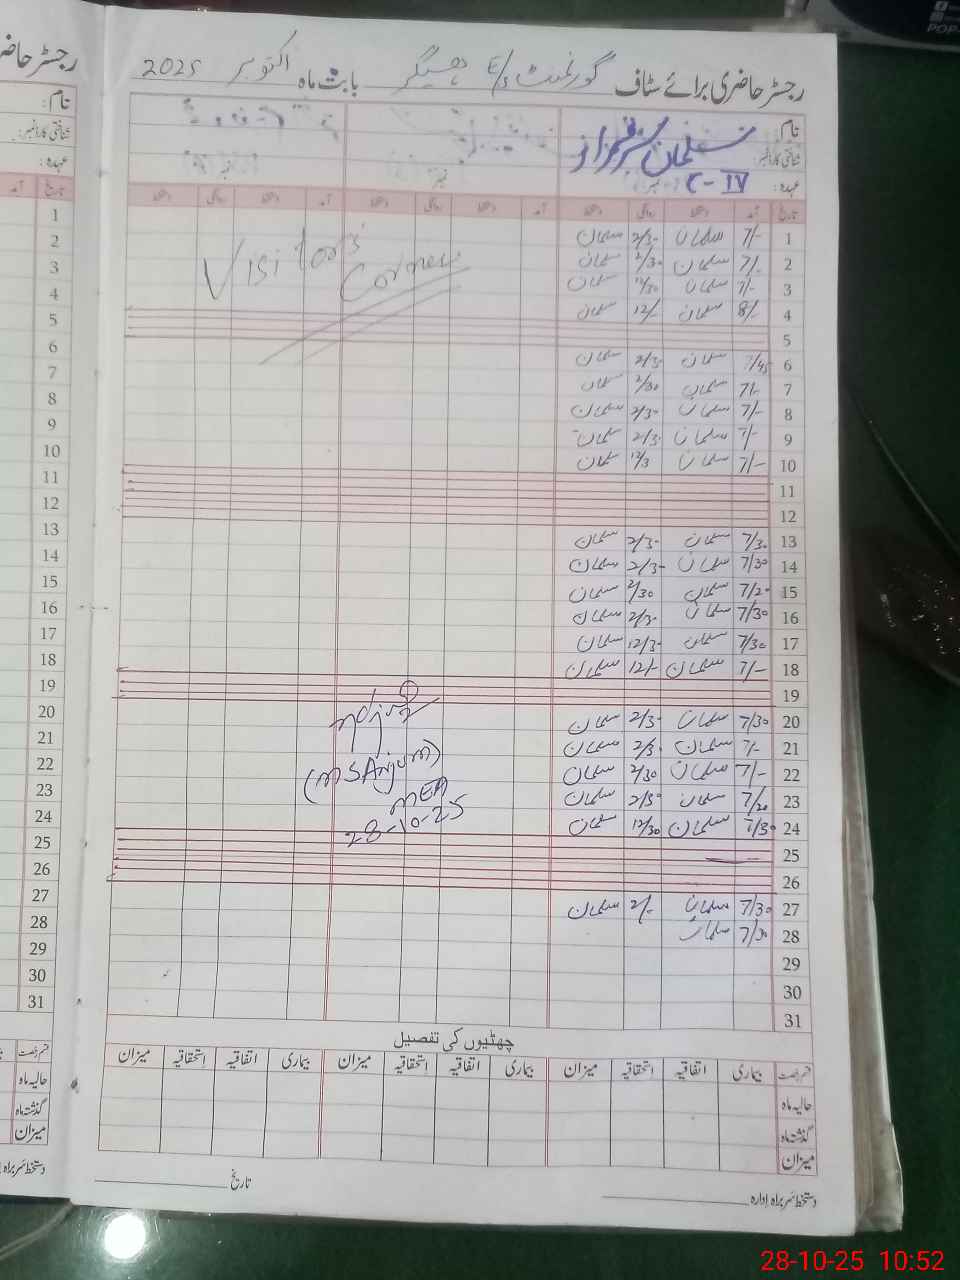 رجسٹر حاضری برائے سٹاف گورنمنٹ E/S بابت ماہ اکتوبر 2025
نام: سلمان سرفراز
شناختی کارڈ نمبر:
عہدہ: C-IV
تاریخ آمد دستخط روانگی دستخط آمد دستخط روانگی دستخط آمد دستخط روانگی دستخط
Visitor's
Corner
1 7/- سلمان 2/30 سلمان
2 7/- سلمان 2/30 سلمان
3 7/- سلمان 12/30 سلمان
4 8/- سلمان 12/- سلمان
5
6 7/45 سلمان 2/30 سلمان
7 7/- سلمان 2/30 سلمان
8 7/- سلمان 2/30 سلمان
9 7/- سلمان 2/30 سلمان
10 7/- سلمان 12/3 سلمان
11
12
13 7/30 سلمان 2/30 سلمان
14 7/30 سلمان 2/30 سلمان
15 7/20 سلمان 2/30 سلمان
16 7/30 سلمان 2/30 سلمان
17 7/30 سلمان 12/30 سلمان
18 7/- سلمان 12/- سلمان
19
20 7/30 سلمان 2/30 سلمان
21 7/- سلمان 2/30 سلمان
22 7/- سلمان 2/30 سلمان
23 7/20 سلمان 2/30 سلمان
24 7/30 سلمان 12/30 سلمان
(M S Anjum)
MEA
28-10-25
25
26
27 7/30 سلمان 2/- سلمان
28 7/30 سلمان
29
30
31
چھٹیوں کی تفصیل
قسم رخصت بیماری اتفاقیہ استحقاقیہ میزان بیماری اتفاقیہ استحقاقیہ میزان بیماری اتفاقیہ استحقاقیہ میزان
حالیہ ماہ
گذشتہ ماہ
میزان
دستخط سربراہ ادارہ تاریخ
28-10-25 10:52